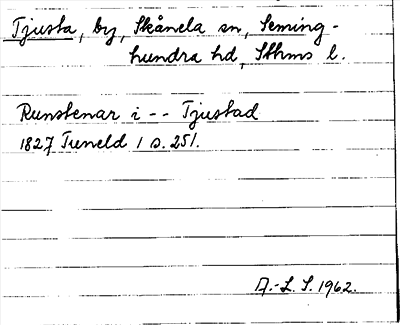 Tjusta, by, Skånela sn, Seming-
hundra hd, Sthms l.
Runstenar i -- Tjustad
1827 Tuneld 1 s. 251.
A.-L. S. 1962.